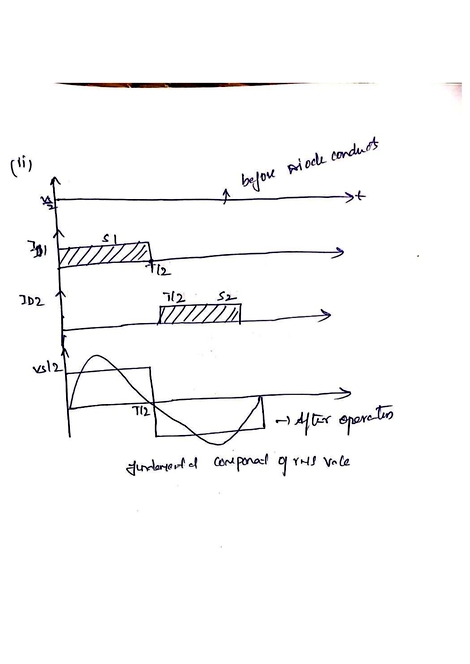 (ii)
before Diode conducts
t
S1
T/2
ID2
T/2 S2
Vs/2
T/2
→ After operation
fundamental component of rms value